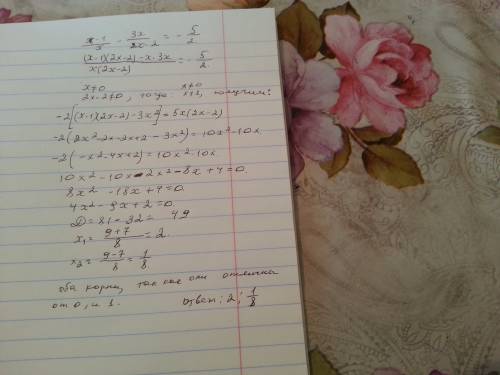 x-1/x - 3x/2x-2 = -5/2
(x-1)(2x-2)-x·3x/x(2x-2) = -5/2
x≠0
2x-2≠0, тогда x≠0 x≠1, получим:
-2[(x-1)(2x-2)-3x²]=5x(2x-2)
-2(2x²-2x-2x+2-3x²)=10x²-10x
-2(-x²-4x+2)=10x²-10x
10x²-10x-2x²-8x+4=0.
8x²-18x+4=0.
4x²-9x+2=0.
D=81-32=49
x₁=9+7/8=2.
x₂=9-7/8=1/8
оба корни, так как они отличны
от 0, и 1. Ответ: 2; 1/8